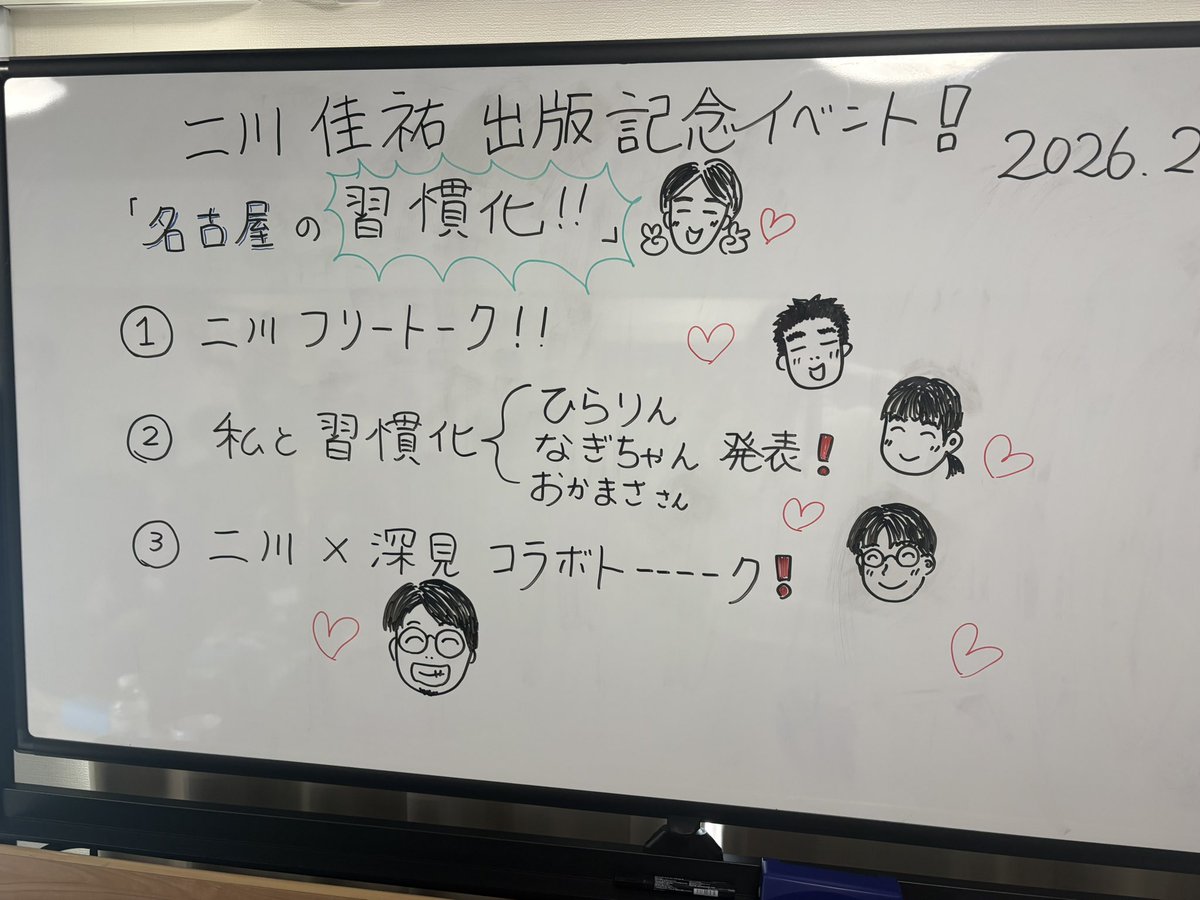 二川 佳祐 出版記念イベント!
2026.2
「名古屋の習慣化!!」
① 二川フリートーク!!
② 私と習慣化{ひらりん
なぎちゃん 発表!
おかまささん
③ 二川×深見 コラボトーーーーク!